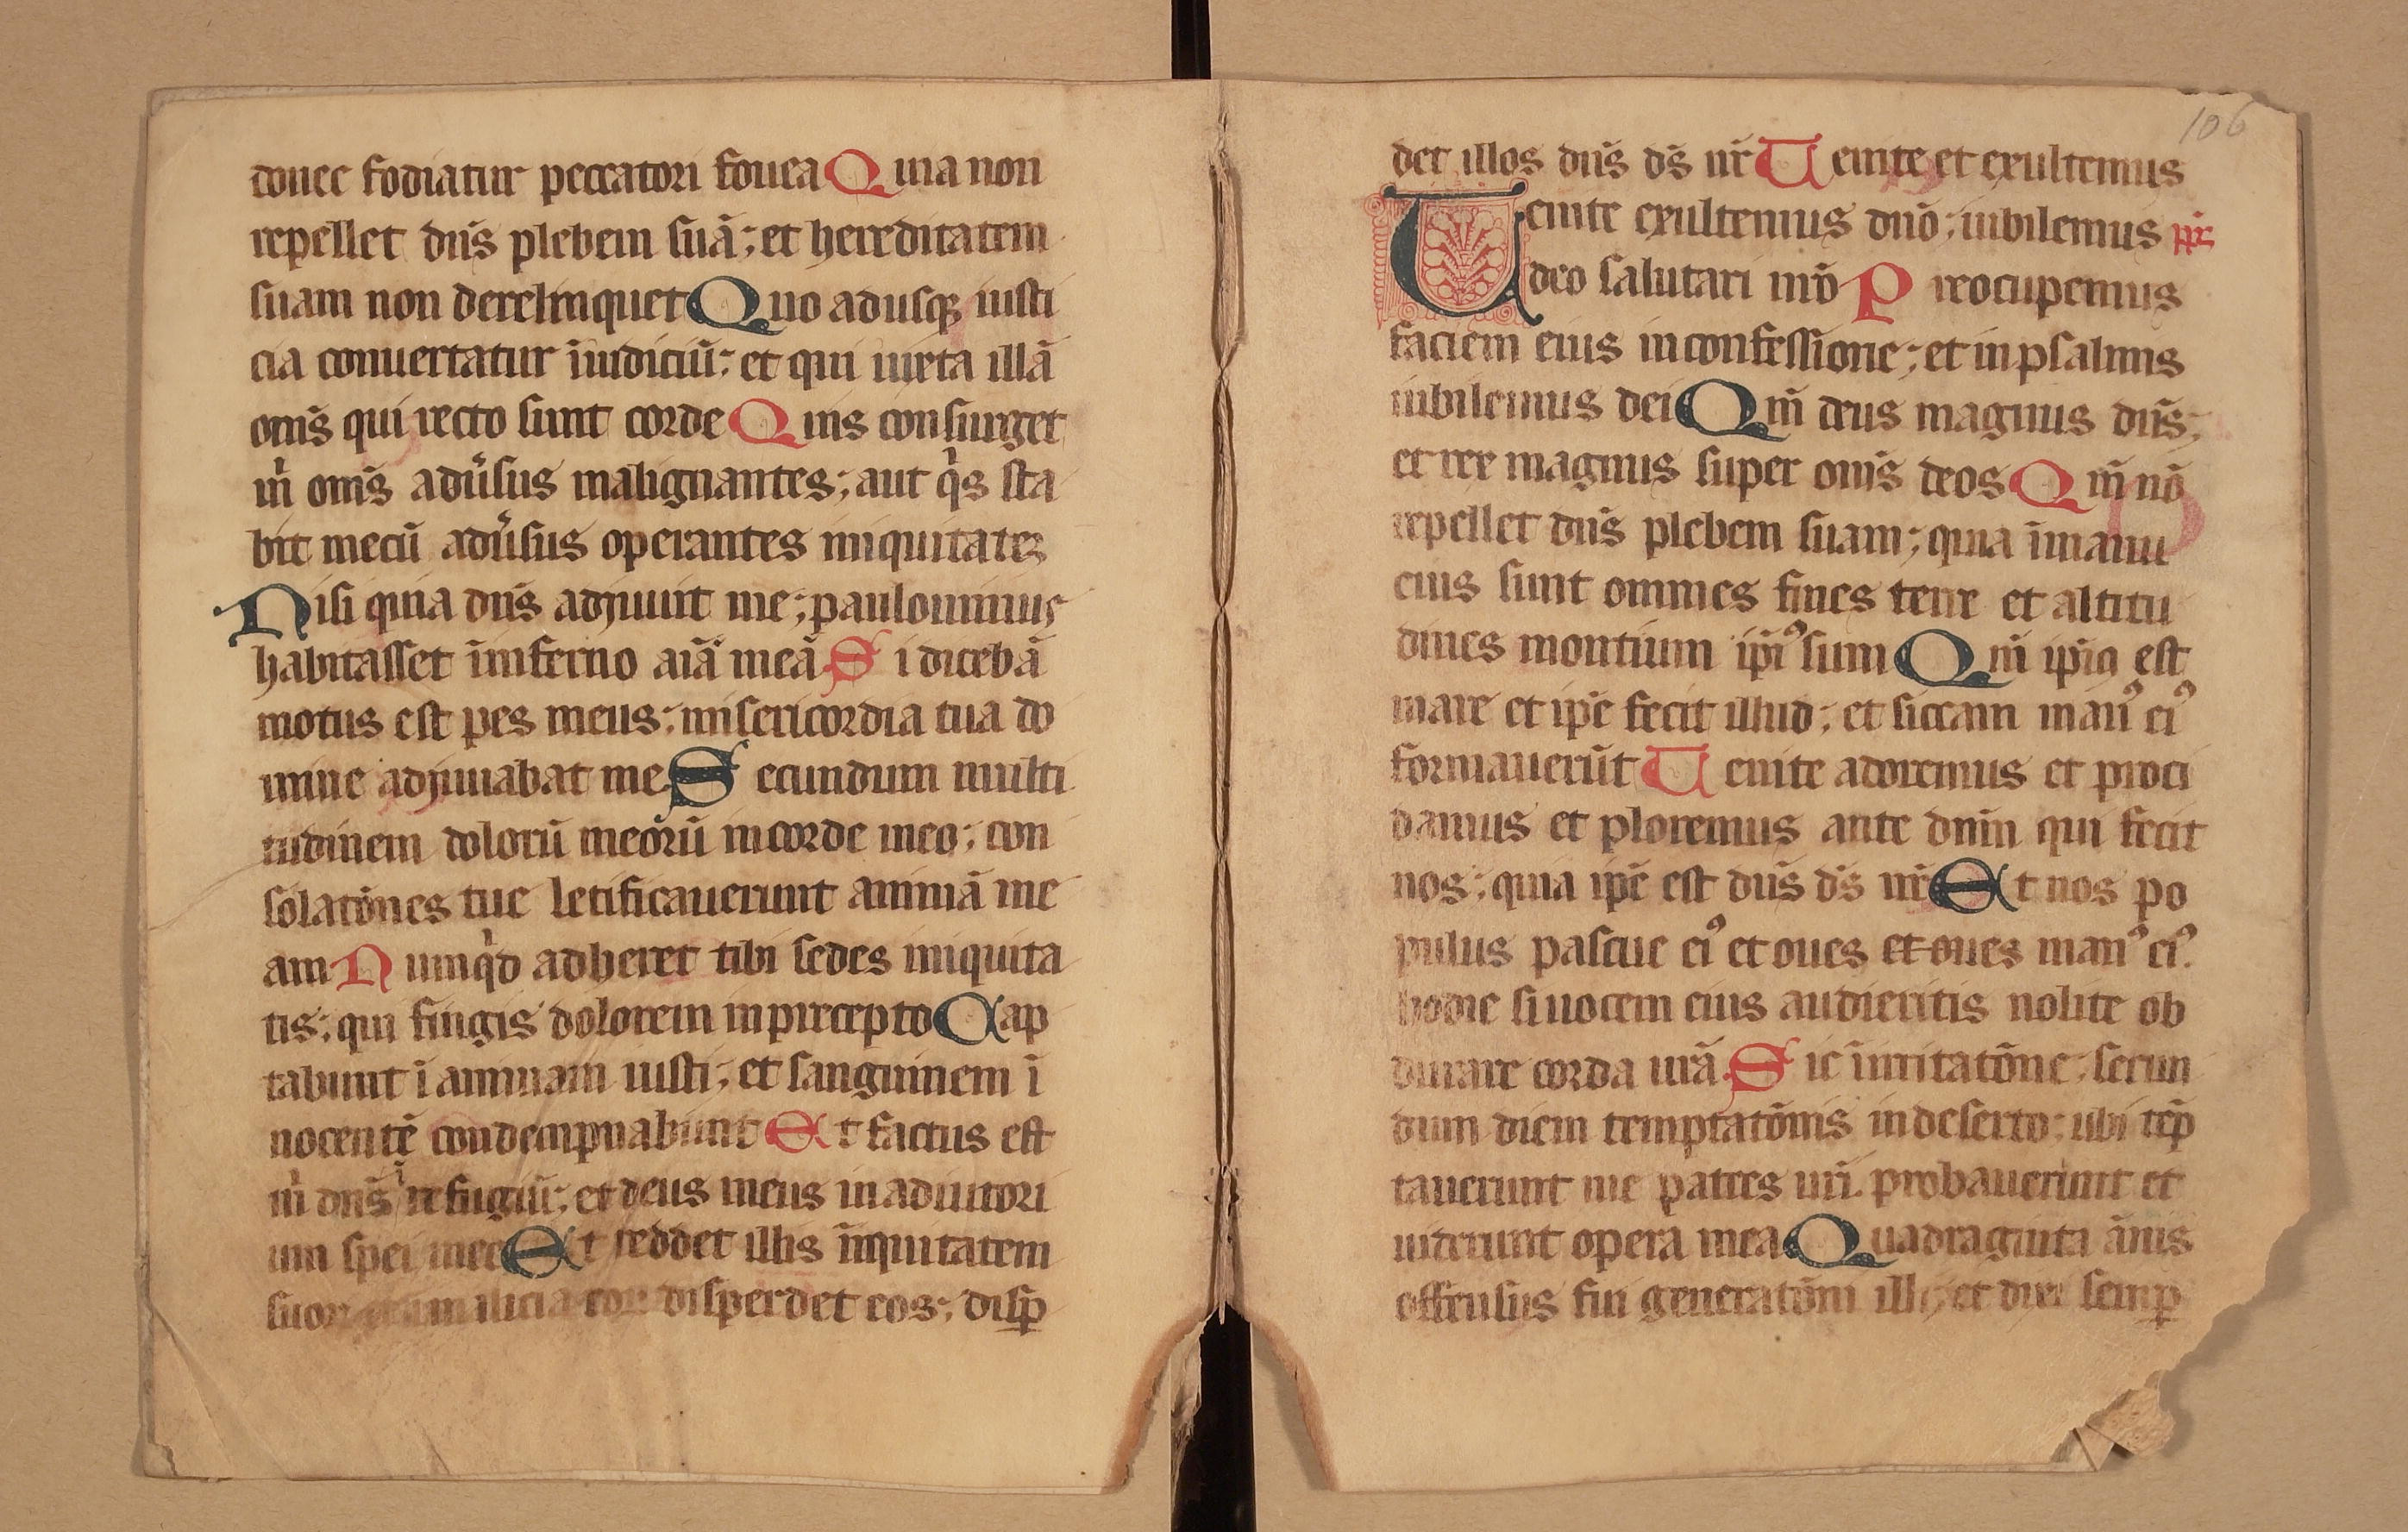 donec fodiatur peccatori fouea Quia non
repellet dn̄s plebem suā; et hereditatem
suam non derelinquet Quo adusqꝫ iusti
cia conuertatur īiudiciū; et qui iuxta illā
om̄s qui recto sunt corde Quis consurget
m̄ om̄s adu̾sus malignantes; aut qͥs sta
bit mecū adu̾sus operantes iniquitateꝫ
Nisi quia dn̄s adjuuit me; paulominus
habitasset īinferno aīā meā Si dicebā
motus est pes meus; misericordia tua do
mine adjuuabat me Secundum multi
tudinem dolorū meorū in corde meo; con
solatōnes tue letificauerunt animā me
am Numqͥd adheret tibi sedes iniquita
tis; qui fingis dolorem in precepto Cap
tabunt ī animam iusti; et sanguinem ī
nocentē condempnabunt Et factus est
m̄ dn̄s ī refugiū; et deus meus in adiutori
um spei mee Et reddet illis īiquitatem
suoꝝ malicia eoꝝ disperdet eos; disꝑ
106
det illos dn̄s ds̄ nr̄ Uenite et exultemus
Uenite exultemus dn̄o; iubilemus pꝰ
deo salutari nr̄o Preocupemus
faciem eius in confessione; et in psalmis
iubilemus dei Qm̄ deus magnus dn̄s;
et rex magnus super om̄s deos Qm̄ nō
repellet dn̄s plebem suam; quia īmanu
eius sunt ommes fines terre et altitu
dines montium ip̄iꝰ sum Qm̄ ip̄iꝰ est
mare et ip̄e fecit illud; et siccam man̄ꝰ eiꝰ
formauerūt Uenite adoremus et proci
damus et ploremus ante dnm̄ qui fecit
nos; quia ip̄e est dn̄s ds̄ nr̄ Et nos po
pulus pascue eiꝰ et oues et oues manꝰ eiꝰ.
hodie si uocem eius audieritis nolite ob
durare corda ur̄a Sic īirritatōne; secun
dum diem temptatōnis in deserto; ubi tēp
tauerunt me patres ur̄i. probauerunt et
uiderunt opera mea Quadraginta ānis
offensus fui generatōni illi; et dixi semꝑ